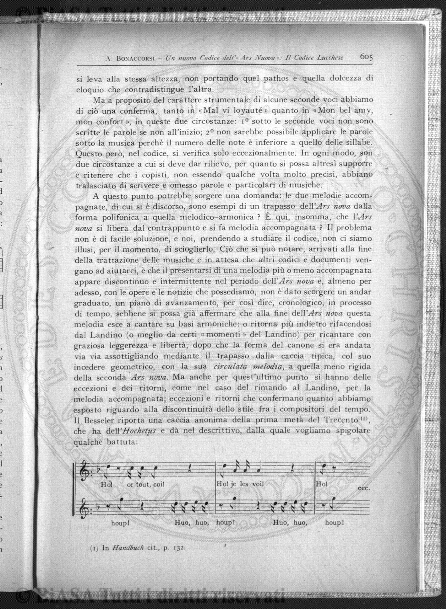 A. BONACCORSI - Un nuovo Codice dell'« Ars Nuova »: Il Codice Lucchese 605
si leva alla stessa altezza, non portando quel pathos e quella dolcezza di
eloquio che contradistingue l'altra.
Ma a proposito del carattere strumentale di alcune seconde voci abbiamo
di ciò una conferma, tanto in «Mal vi loyauté» quanto in «Mon bel amy,
mon confort»; in queste due circostanze: 1º sotto le seconde voci non sono
scritte le parole se non all'inizio; 2º non sarebbe possibile applicare le parole
sotto la musica perchè il numero delle note è inferiore a quello delle sillabe.
Questo però, nel codice, si verifica solo eccezionalmente. In ogni modo, son
due circostanze a cui si deve dar rilievo, per quanto si possa altresì supporre
e ritenere che i copisti, non essendo qualche volta molto precisi, abbiano
tralasciato di scrivere e omesso parole e particolari di musiche.
A questo punto potrebbe sorgere una domanda: le due melodie accom-
pagnate, di cui si è discorso, sono esempi di un trapasso dell'Ars nova dalla
forma polifonica a quella melodico-armonica ? È qui, insomma, che l'Ars
nova si libera dal contrappunto e si fa melodia accompagnata ? Il problema
non è di facile soluzione, e noi, prendendo a studiare il codice, non ci siamo
illusi, per il momento, di scioglierlo. Ciò che si può notare, arrivati alla fine
della trattazione delle musiche e in attesa che altri codici e documenti ven-
gano ad aiutarci, è che il presentarsi di una melodia più o meno accompagnata
appare discontinuo e intermittente nel periodo dell'Ars nova e, almeno per
adesso, con le opere e le notizie che possediamo, non è dato scorgere un andar
graduato, un piano di avanzamento, per così dire, cronologico, in processo
di tempo, sebbene si possa già affermare che alla fine dell'Ars nova questa
melodia esce a cantare su basi armoniche: o ritorna più indietro rifacendosi
dal Landino (o meglio da certi «momenti» del Landino) per ricantare con
graziosa leggerezza e libertà, dopo che la forma del canone si era andata
via via assottigliando mediante il trapasso dalla caccia tipica, col suo
incedere geometrico, con la sua circulata melodia, a quella meno rigida
della seconda Ars nova. Ma anche per quest'ultimo punto si hanno delle
eccezioni e dei ritorni, come nel caso del rimando al Landino, per la
melodia accompagnata; eccezioni e ritorni che confermano quanto abbiamo
esposto riguardo alla discontinuità dello stile fra i compositori del tempo.
Il Besseler riporta una caccia anonima della prima metà del Trecento(1),
che ha dell'Hochetus e dà nel descrittivo, dalla quale vogliamo spigolare
qualche battuta:
Ho! or tout, coi! Ho! je les voi! Ho! ecc.
houp! Huo, huo, houp! Huo, huo, houp!
(1) In Handbuch cit., p. 132.